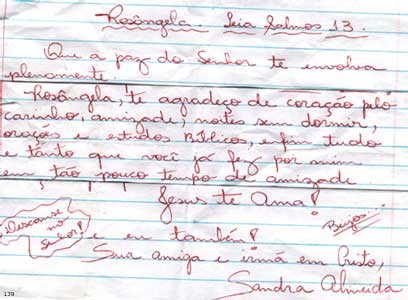 Rosângela. Leia Salmos 13.
Que a paz do Senhor te envolva
plenamente.
Rosângela, te agradeço de coração pelo
carinho, amizade, noites sem dormir,
orações e estudos Bíblicos, enfim tudo
e tanto que você já fez por mim
em tão pouco tempo de amizade
Jesus te Ama!
Beijos...
Descanse
no
Senhor!
e eu também!
Sua amiga e irmã em Cristo,
Sandra Almeida
139